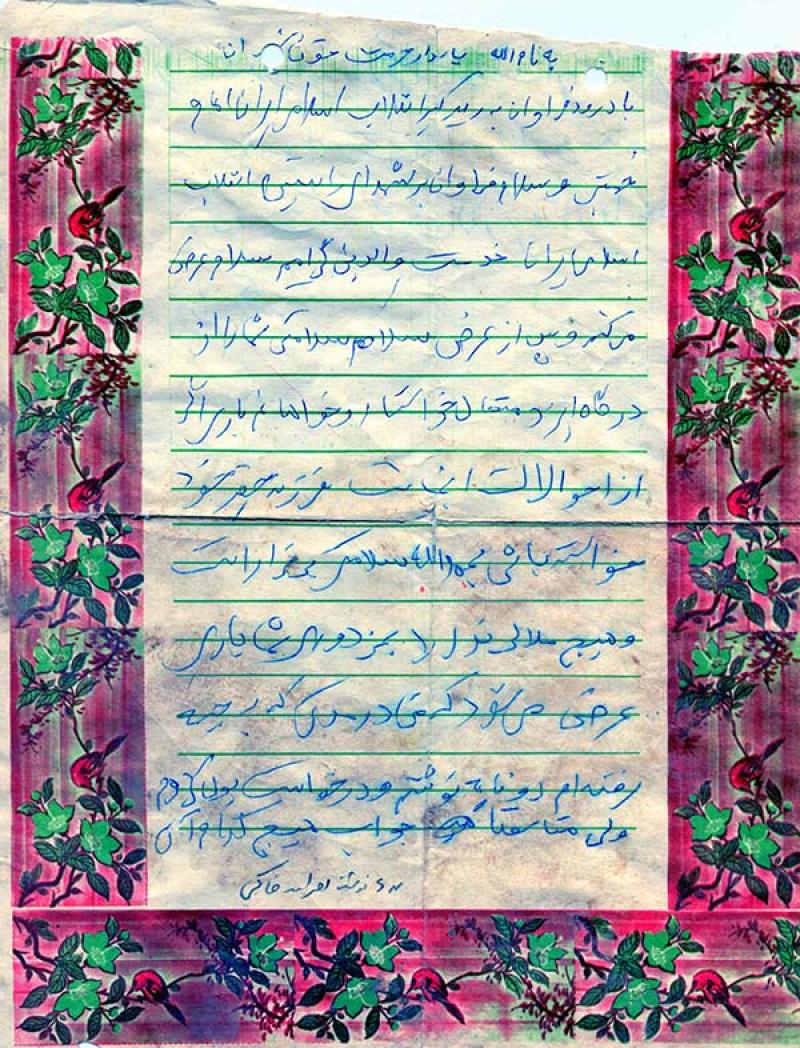 به نام الله پاسدار حرمت خون شهیدان
با درود فراوان به رهبر کبیر انقلاب اسلامی ایران امام
خمینی و سلام فراوان بر شهدای راستین انقلاب
اسلامی ایران خدمت والدین گرامیم سلام عرض
میکنم و پس از عرض سلام سلامتی شما را از
درگاه ایزد متعال خواستار و خواهانم باری اگر
از احوالات اینجانب فرزند حقیر خود
خواسته باشی بحمدالله سلامتی برقرار است
و هیچ ملالی ندارد بجز دوری شما باری
عرض می‌شود که تا در مدتی که به جبهه
رفته‌ام دو نامه نوشتم و درخواست پول کردم
ولی متاسفانه جواب هیچ کدام